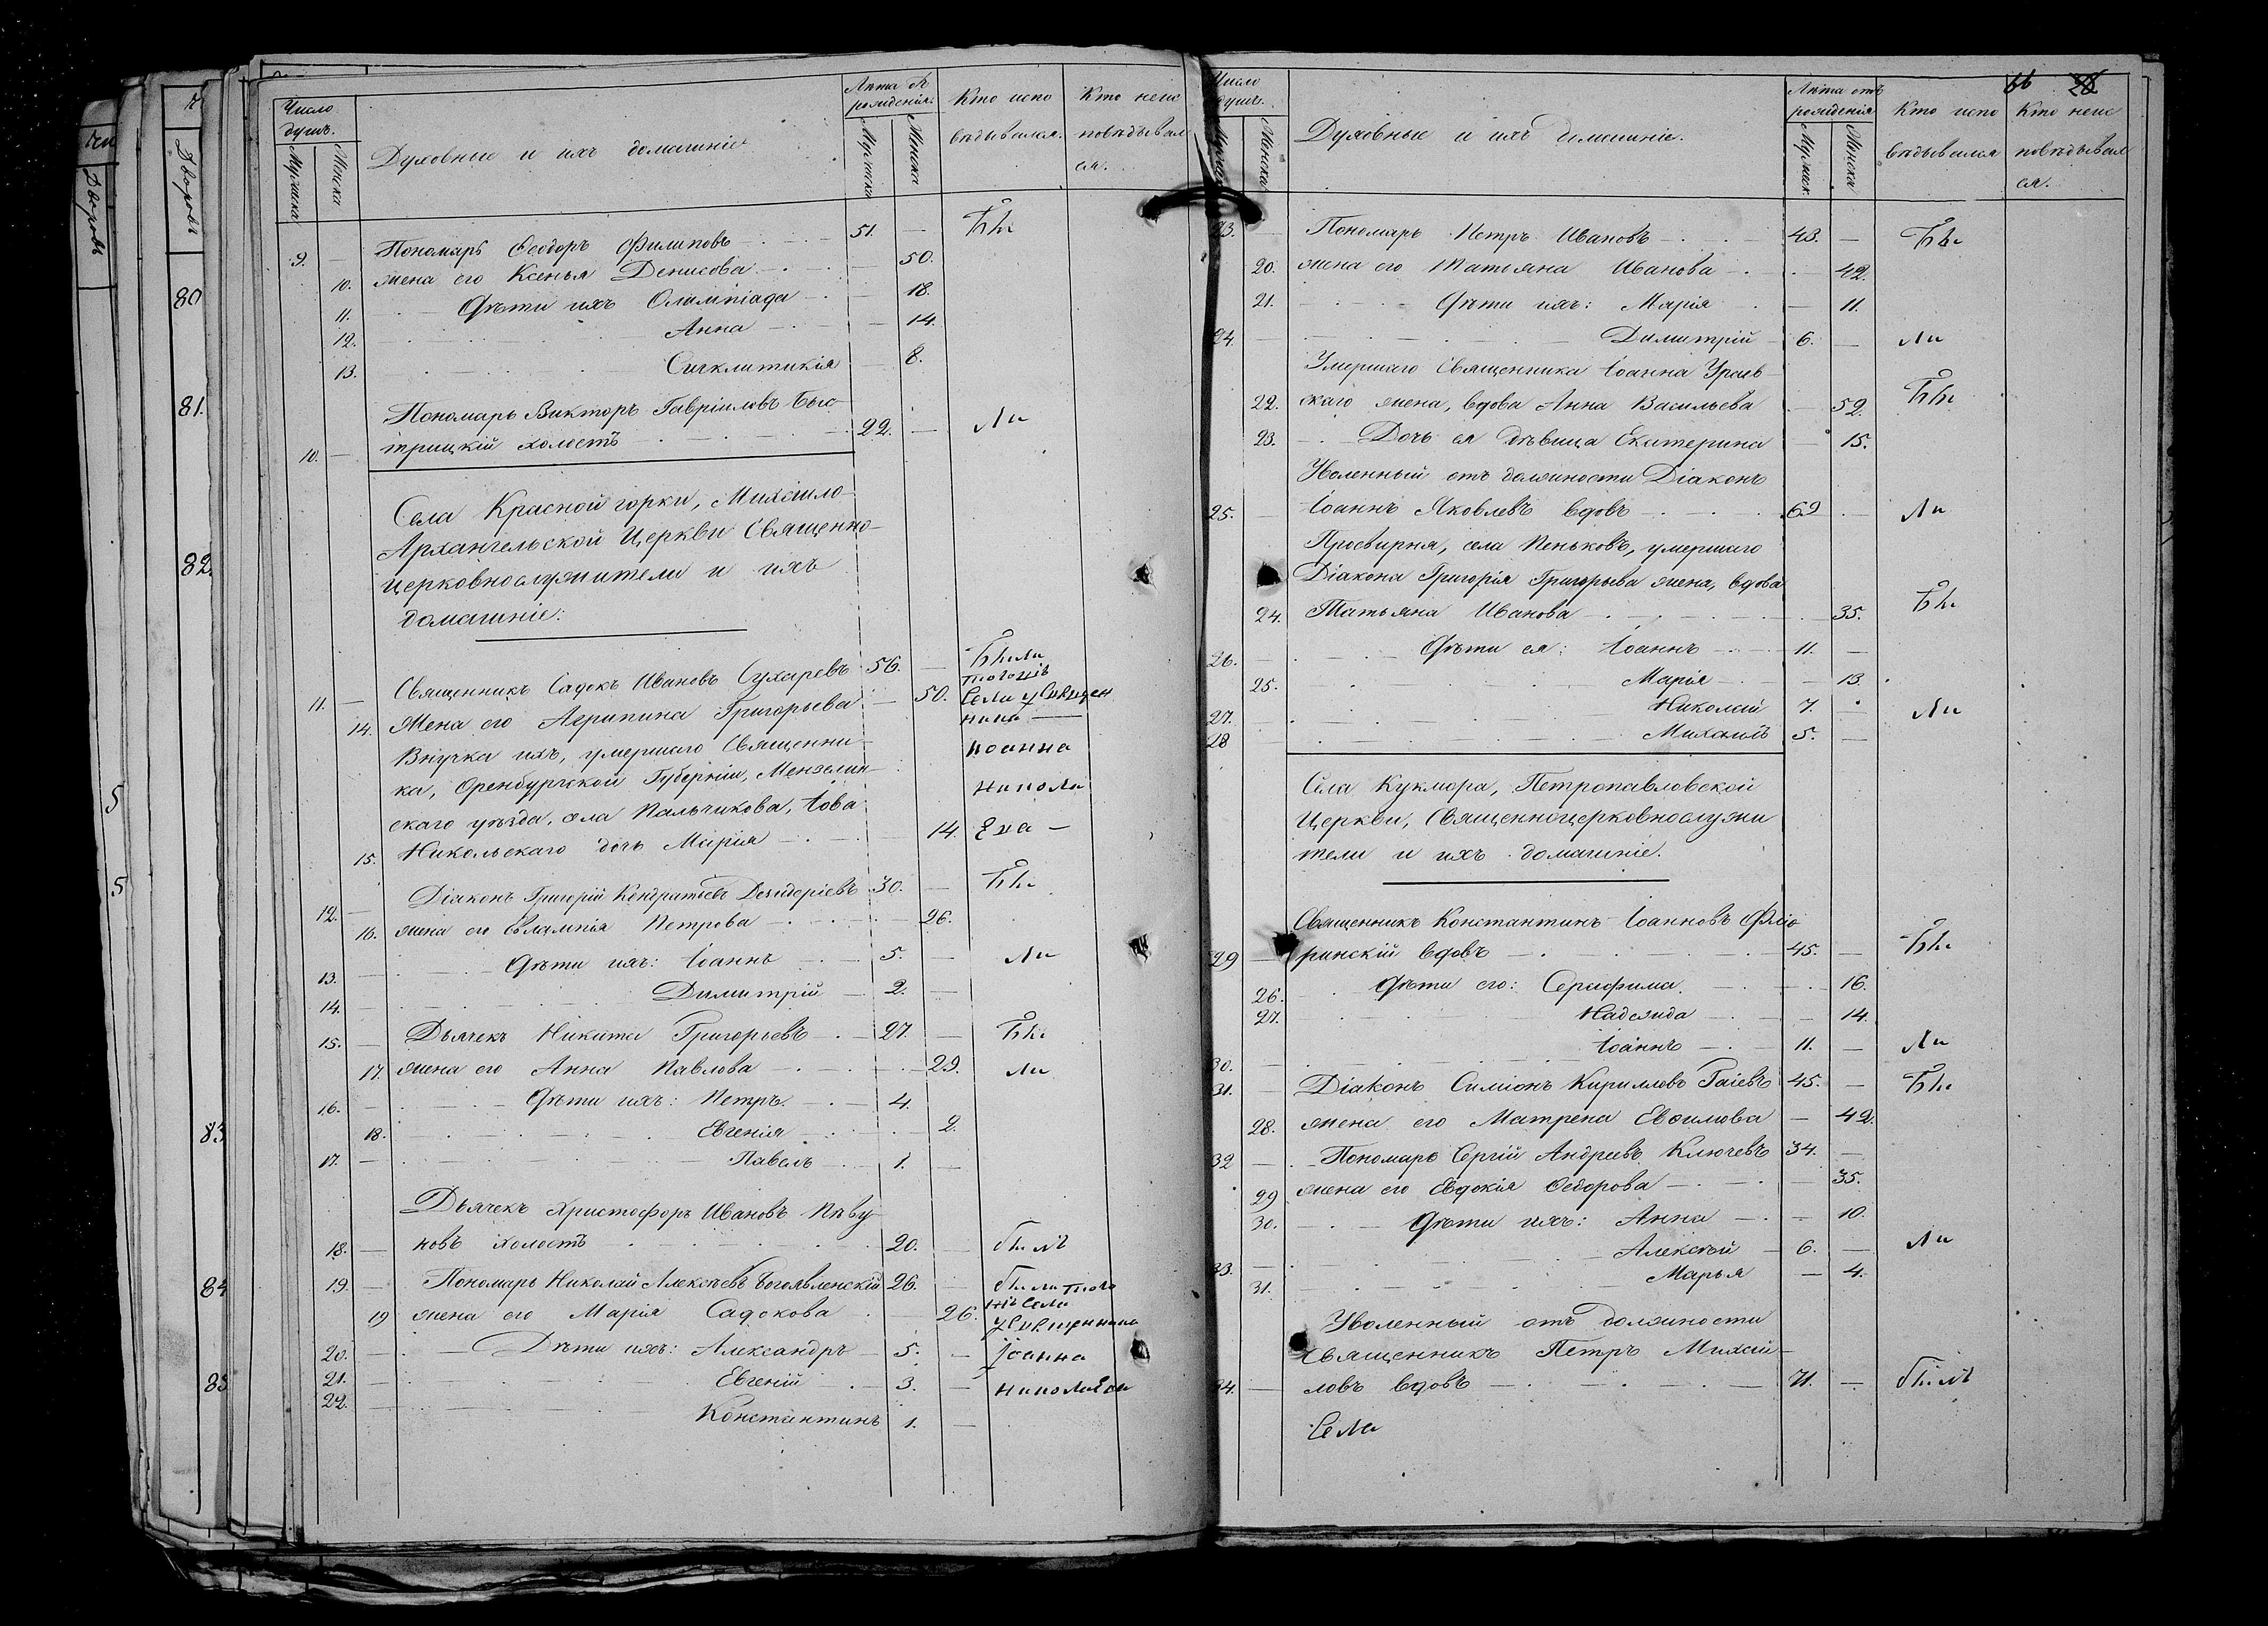 Число душъ.
Мужеска
Женска
Духовные и ихъ домашніе
Лѣта отъ рожденія.
Мужеска
Женска
Кто испо
вѣдывался.
Кто неис
повѣдывал
ся.
9. — Пономарь Ѳеодоръ Филиповъ — 51. —
10. жена его Ксенья Денисова — 50.
11. Дѣти ихъ Олимпіада — 18.
12. Анна — 14.
13. Сигклитикія — 8.
Пономарь Викторъ Гавріиловъ Быс-
10. — трицкій холостъ — 22. —
Села Красной горки, Михаило-
Архангельской Церкви Священно-
церковнослужители и ихъ
домашніе:
Священникъ Садокъ Ивановъ Сухаревъ 56. — Были
11. — тогожъ
14. Жена его Агрипина Григорьева — 50. Села у Священ
Внучка ихъ, умершаго Священни- ника
ка, Оренбургской Губерніи, Мензелин- Іоанна
скаго уѣзда, села Пальчикова, Іова Николь
15. Никольскаго дочь Марія — 14.
12. — Діаконъ Григорій Кондратьевъ Дезидеріевъ 30. —
16. жена его Евлампія Петрова — 26.
13. — Дѣти ихъ: Іоаннъ — 5. — ли
14. — Димитрій — 2. —
15. — Дьячекъ Никита Григорьевъ — 27. —
17. жена его Анна Павлова — 29. ли
16. — Дѣти ихъ: Петръ — 4.
18. Евгенія — 2.
17. — Павелъ — 1. —
Дьячекъ Христофоръ Ивановъ Пѣву-
18. — новъ холостъ — 20. — былъ
19. — Пономарь Николай Алексѣевъ Богоявленскій 26. — были того
19 жена его Марія Садокова — 26. жъ села
у Священника
20. — Дѣти ихъ: Александръ — 5. — Іоанна
21. — Евгеній — 3. —
22. — Константинъ 1. —
66 28
Число душъ.
Женска
Духовные и ихъ домашніе.
Лѣта отъ рожденія
Мужеск.
Женска
Кто испо
вѣдывался
Кто неис
повѣдывал
ся.
23. — Пономарь Петръ Ивановъ — 43. —
20. жена его Татьяна Иванова — 42.
21. Дѣти ихъ: Марія — 11.
24. — Димитрій — 6. — ли
Умершаго Священника Іоанна Ураев-
22. скаго жена, вдова Анна Васильева — 52.
23. — Дочь ея дѣвица Екатерина — 15.
Уволенный отъ должности Діаконъ
25. — Іоаннъ Яковлевъ вдовъ — 69 — ли
Просвирня, села Пеньковъ, умершаго
Діакона Григорія Григорьева жена, вдова
24. Татьяна Иванова — 35.
26. — Дѣти ея: Іоаннъ — 11. —
25. Марія — 13.
27. Николай 7. ли
28 — Михаилъ 5. —
Села Кукмора, Петропавловской
Церкви, Священноцерковнослужи
тели и ихъ домашніе.
Священникъ Константинъ Іоанновъ Фліо-
29 — ринскій вдовъ — 45. —
26. Дѣти его: Серафима — 16.
27. Надежда — 14.
30. — Іоаннъ — 11. — ли
31. — Діаконъ Симіонъ Кирилловъ Гаіевъ 45. —
28. жена его Матрена Евѳимова — 42.
32 — Пономарь Сергій Андреевъ Ключевъ 34. —
29 жена его Евдокія Ѳедорова — 35.
30. — Дѣти ихъ: Анна — 10.
33. — Алексѣй — 6. — ли
31. Марья — 4.
Уволенный отъ должности
Священникъ Петръ Михай-
34. — ловъ вдовъ — 71. — былъ
Села
80
81.
82.
83
84
85
5
5